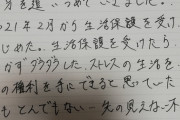 方を追いつめていました。
021年2月から生活保護を受け
じめた。生活保護を受けたら
かずダラダラした、ストレスの生活を
の権利を手にできると思っていた
もとんでもない…先の見えない不